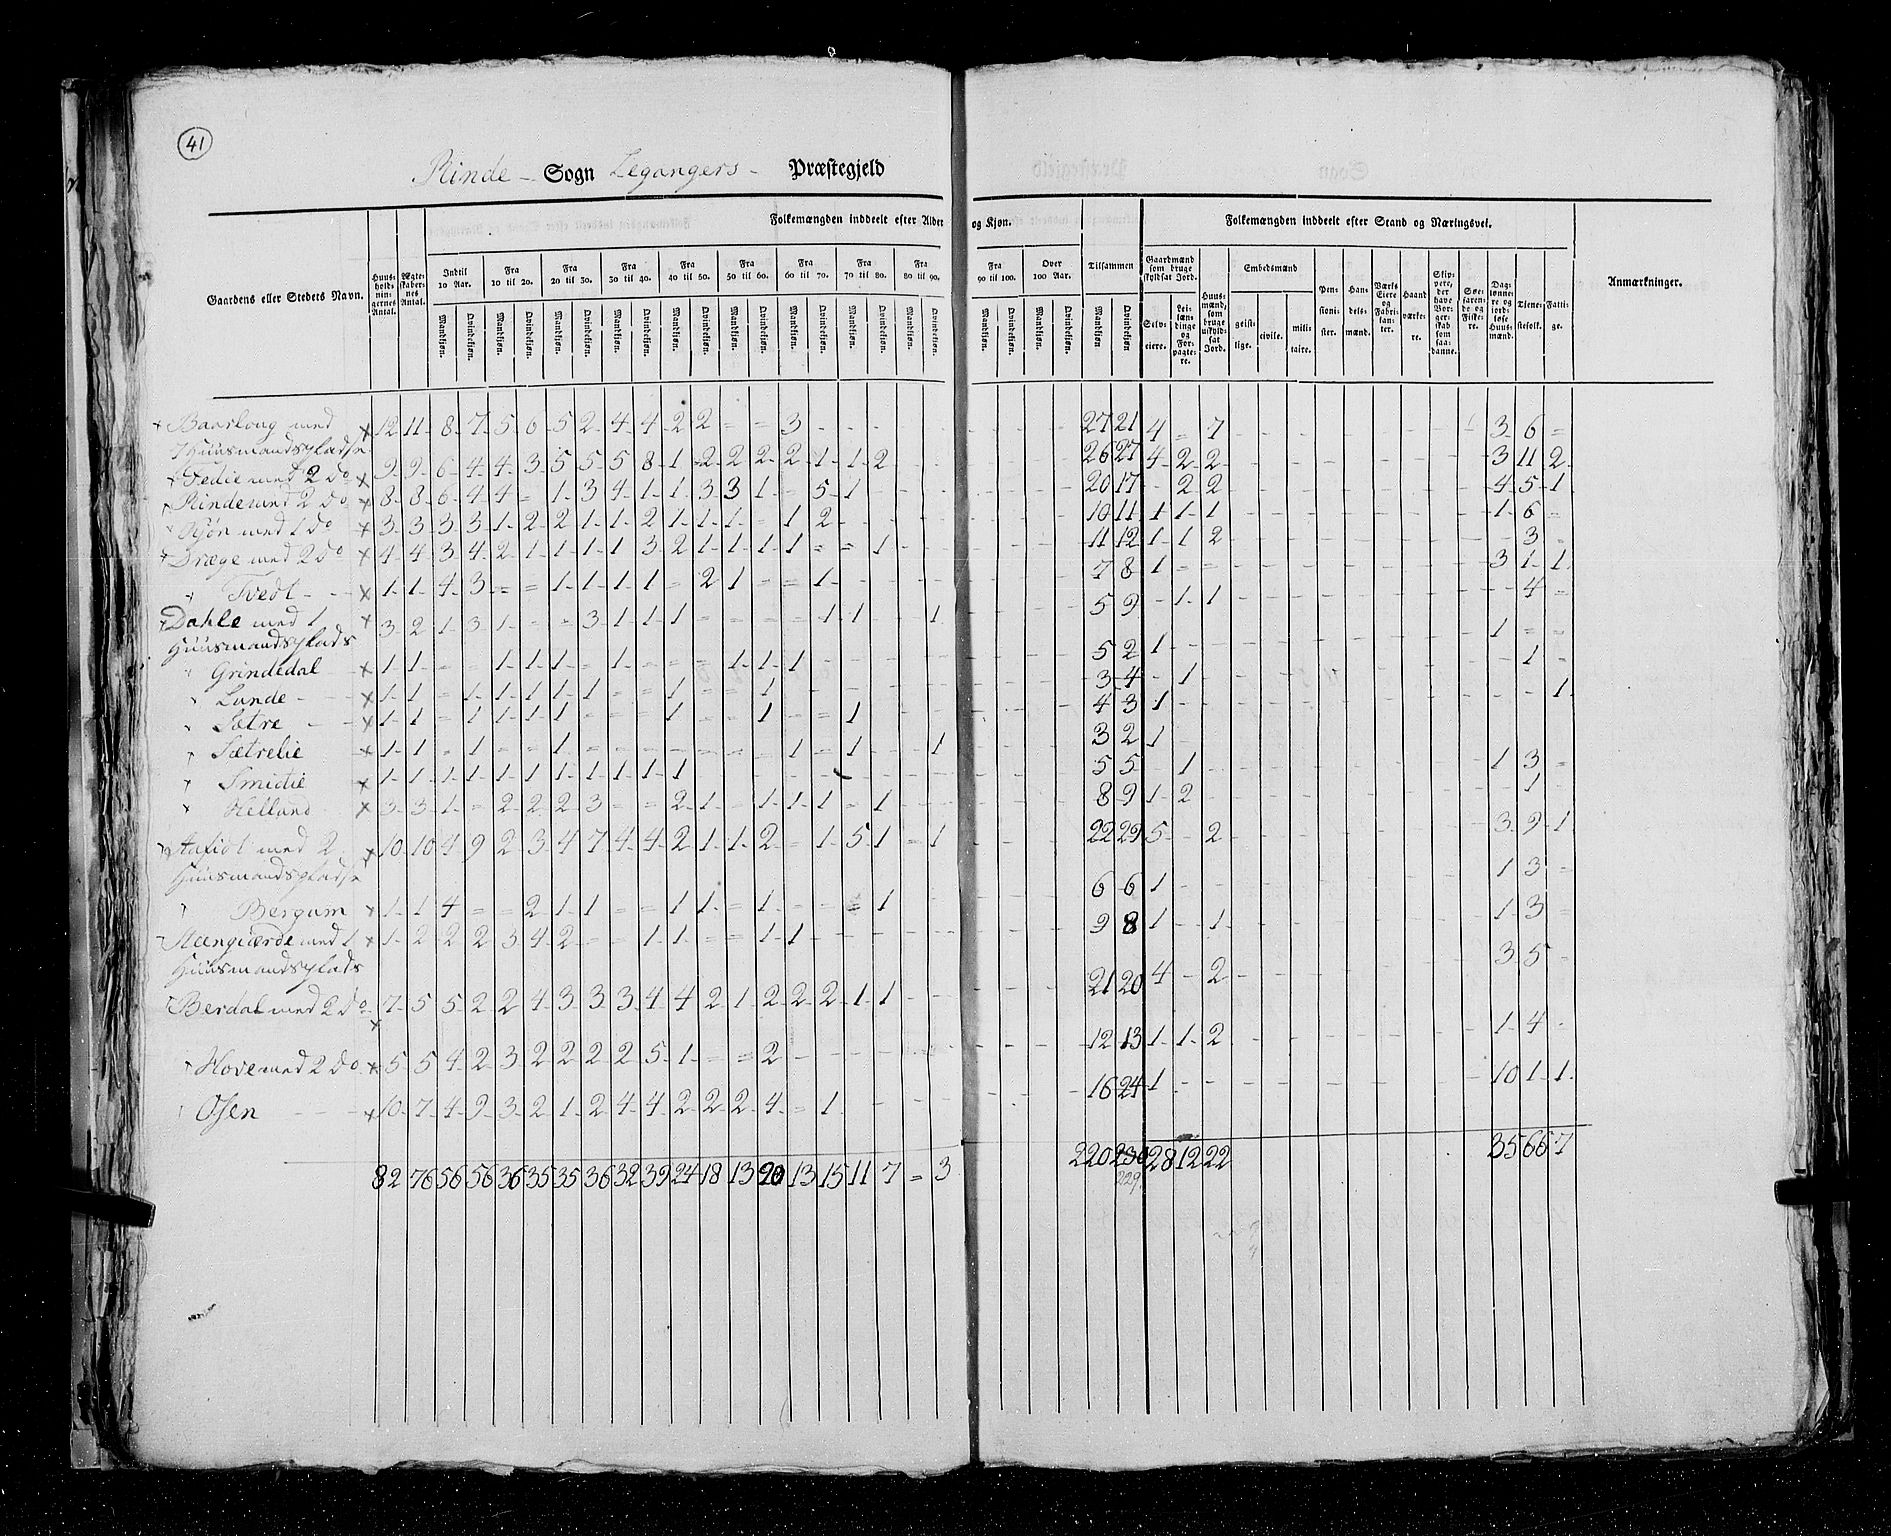 41
Rinde - Sogn Leganger's - Præstegjeld
Folkemængden inddeelt efter Alder og Kjøn. Folkemængden inddeelt efter Stand og Næringsvei.
Gaardens eller Stedets Navn. Huus-holdnin-gernes Antal. Ægte-skaber-nes Antal. Indtil 10 Aar. Fra 10 til 20. Fra 20 til 30. Fra 30 til 40. Fra 40 til 50. Fra 50 til 60. Fra 60 til 70. Fra 70 til 80. Fra 80 til 90. Fra 90 til 100. Over 100 Aar. Tilsammen Gaardmænd som bruge skyldsat Jord. Huus-mænd, som bruge uskyld-sat Jord. Embedsmænd Pen-sioni-ster. Han-dels-mænd. Værks Eiere og Fabri-kan-ter. Haand værke-re. Skip-pere, der have Bor-ger-skab som saa-danne. Søe-faren-de og Fiske-re. Dag-lønne-re og jord-løse Huus-mænd. Tiene-stefolk. Fatti-ge. Anmærkninger.
Mandkjøn. Qvindekjøn. Mandkjøn. Qvindekjøn. Mandkjøn. Qvindekjøn. Mandkjøn. Qvindekjøn. Mandkjøn. Qvindekjøn. Mandkjøn. Qvindekjøn. Mandkjøn. Qvindekjøn. Mandkjøn. Qvindekjøn. Mandkjøn. Qvindekjøn. Mandkjøn. Qvindekjøn. Mandkjøn. Qvindekjøn. Mandkjøn Qvindekjøn Selv-eiere. Lei-læn-dinge og For-pagte-re. geist-lige. civile. mili-taire.
Baarloug med x 12 11 8 7 5 6 5 2 4 4 2 2 = = 3 - - - - - 27 21 4 = 7 3 6 =
7 Huusmandspladse
Fedie med 2 do x 9 9 6 4 4 3 5 5 5 8 1 2 2 2 2 1 1 2 - - 26 27 4 2 2 3 11 2
Rinde med 2 do x 8 8 6 4 4 = 1 3 4 1 1 3 3 1 = 5 1 - - - 20 17 - 2 2 4 5 1
Njøn med 1 do x 3 3 3 3 1 2 2 1 1 2 1 1 1 = 1 2 - - - - 10 11 1 1 1 1 6 =
Dræge med 2 do x 4 4 3 4 2 1 1 1 1 3 2 1 1 1 1 = = 1 - - 11 12 1 1 2 - 3 -
" Tvedt - - x 1 1 4 3 = = 1 1 1 1 = 2 1 = = 1 - - - - 7 8 1 = = 3 1 1
Dahle med 1 x 3 2 1 3 1 - = 3 1 1 1 = = = = 1 1 - - 1 5 9 - 1 1 - 4 =
Huusmandsplads
" Grindedal x 1 1 = = 1 1 1 = 1 = = = 1 1 1 - - - - - 5 2 1 - 1 = =
" Lunde - x 1 1 = 1 1 1 1 1 = = 1 = = 1 - - - - - - 3 4 - 1 - 1 =
" Sætre - x 1 1 = 1 1 1 1 = = = 1 = = 1 = = 1 - - - 4 3 1 - - - 1
" Sætrelie x 1 1 = 1 = = 1 = = = = = = = 1 = 1 - - 1 3 2 1 -
" Smidie x 1 1 1 1 1 1 1 1 1 1 1 - - - - - - - - - 5 5 - 1 - 1 3 =
" Helland x 3 3 1 = 2 2 2 3 = = 2 1 = 1 1 1 = 1 - - 8 9 1 2 - - 1 -
Aafidt med 2 x 10 10 4 9 2 3 4 7 4 4 2 1 1 2 = 1 5 1 = 1 22 29 5 - 2 3 9 1
Huusmandspladse
" Bergum x 1 1 4 = = 2 1 1 = = 1 1 = 1 = = = 1 - - 6 6 1 - - 1 3 =
Steengjærde med 1 x 1 2 2 2 3 4 2 = = 1 1 = = 1 1 - - - - - 9 8 1 - 1 1 3 =
Huusmandsplads
Berdal med 2 do x 7 5 5 2 2 4 3 3 3 4 4 2 1 2 2 2 1 1 - - 21 20 4 - 2 3 5 -
Hove med 2 do x 5 5 4 2 3 2 2 2 2 5 1 = = 2 - - - - - - 12 13 1 1 2 1 4 -
Osen - - - x 10 7 4 9 3 2 1 2 4 4 2 2 2 4 = 1 - - - - 16 24 1 - - 10 1 1
82 76 56 56 36 35 35 36 32 39 24 18 13 20 13 15 11 7 = 3 220 230 28 12 22 35 66 7
229